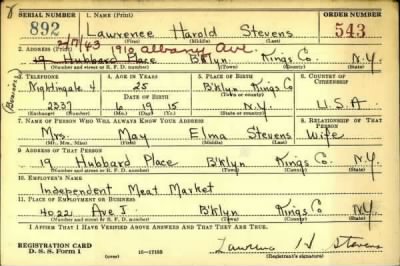 SERIAL NUMBER 1. NAME (Print) ORDER NUMBER
892 Lawrence Harold Stevens 543
(First) (Middle) (Last)
2/17/43 1910 Albany Ave.
2. ADDRESS (Print)
19 Hubbard Place B'klyn Kings Co. N.Y.
(Number and street or R. F. D. number) (Town) (County) (State)
3. TELEPHONE 4. AGE IN YEARS 5. PLACE OF BIRTH 6. COUNTRY OF CITIZENSHIP
Nightingale 4 25 B'klyn Kings Co
DATE OF BIRTH (Town or county)
2337 6 19 15 N.Y. U.S.A.
(Exchange) (Number) (Mo.) (Day) (Yr.) (State or country)
7. NAME OF PERSON WHO WILL ALWAYS KNOW YOUR ADDRESS 8. RELATIONSHIP OF THAT PERSON
Mrs. May Elma Stevens Wife
(Mr., Mrs., Miss) (First) (Middle) (Last)
9. ADDRESS OF THAT PERSON
19 Hubbard Place B'klyn Kings Co. N.Y.
(Number and street or R. F. D. number) (Town) (County) (State)
10. EMPLOYER'S NAME
Independent Meat Market
11. PLACE OF EMPLOYMENT OR BUSINESS
4022 Ave J. B'klyn Kings Co. N.Y.
(Number and street or R. F. D. number) (Town) (County) (State)
I AFFIRM THAT I HAVE VERIFIED ABOVE ANSWERS AND THAT THEY ARE TRUE.
REGISTRATION CARD
D. S. S. Form 1 (over) 16—17105 Lawrence H Stevens
(Registrant's signature)